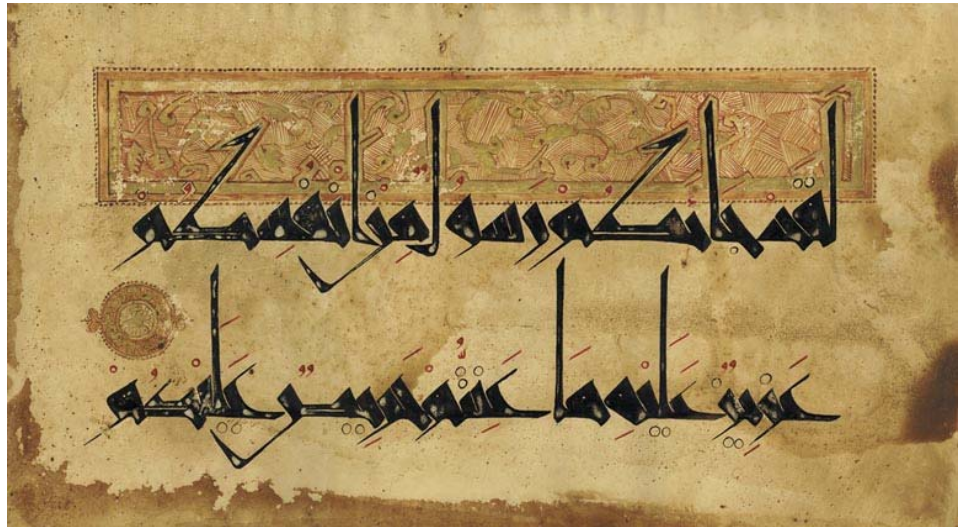 لَقَد جَاءَكُم رَسُولٌ مِن أَنفُسِكُم
عَزِيزٌ عَلَيهِ مَا عَنِتُّم حَرِيصٌ عَلَيكُم